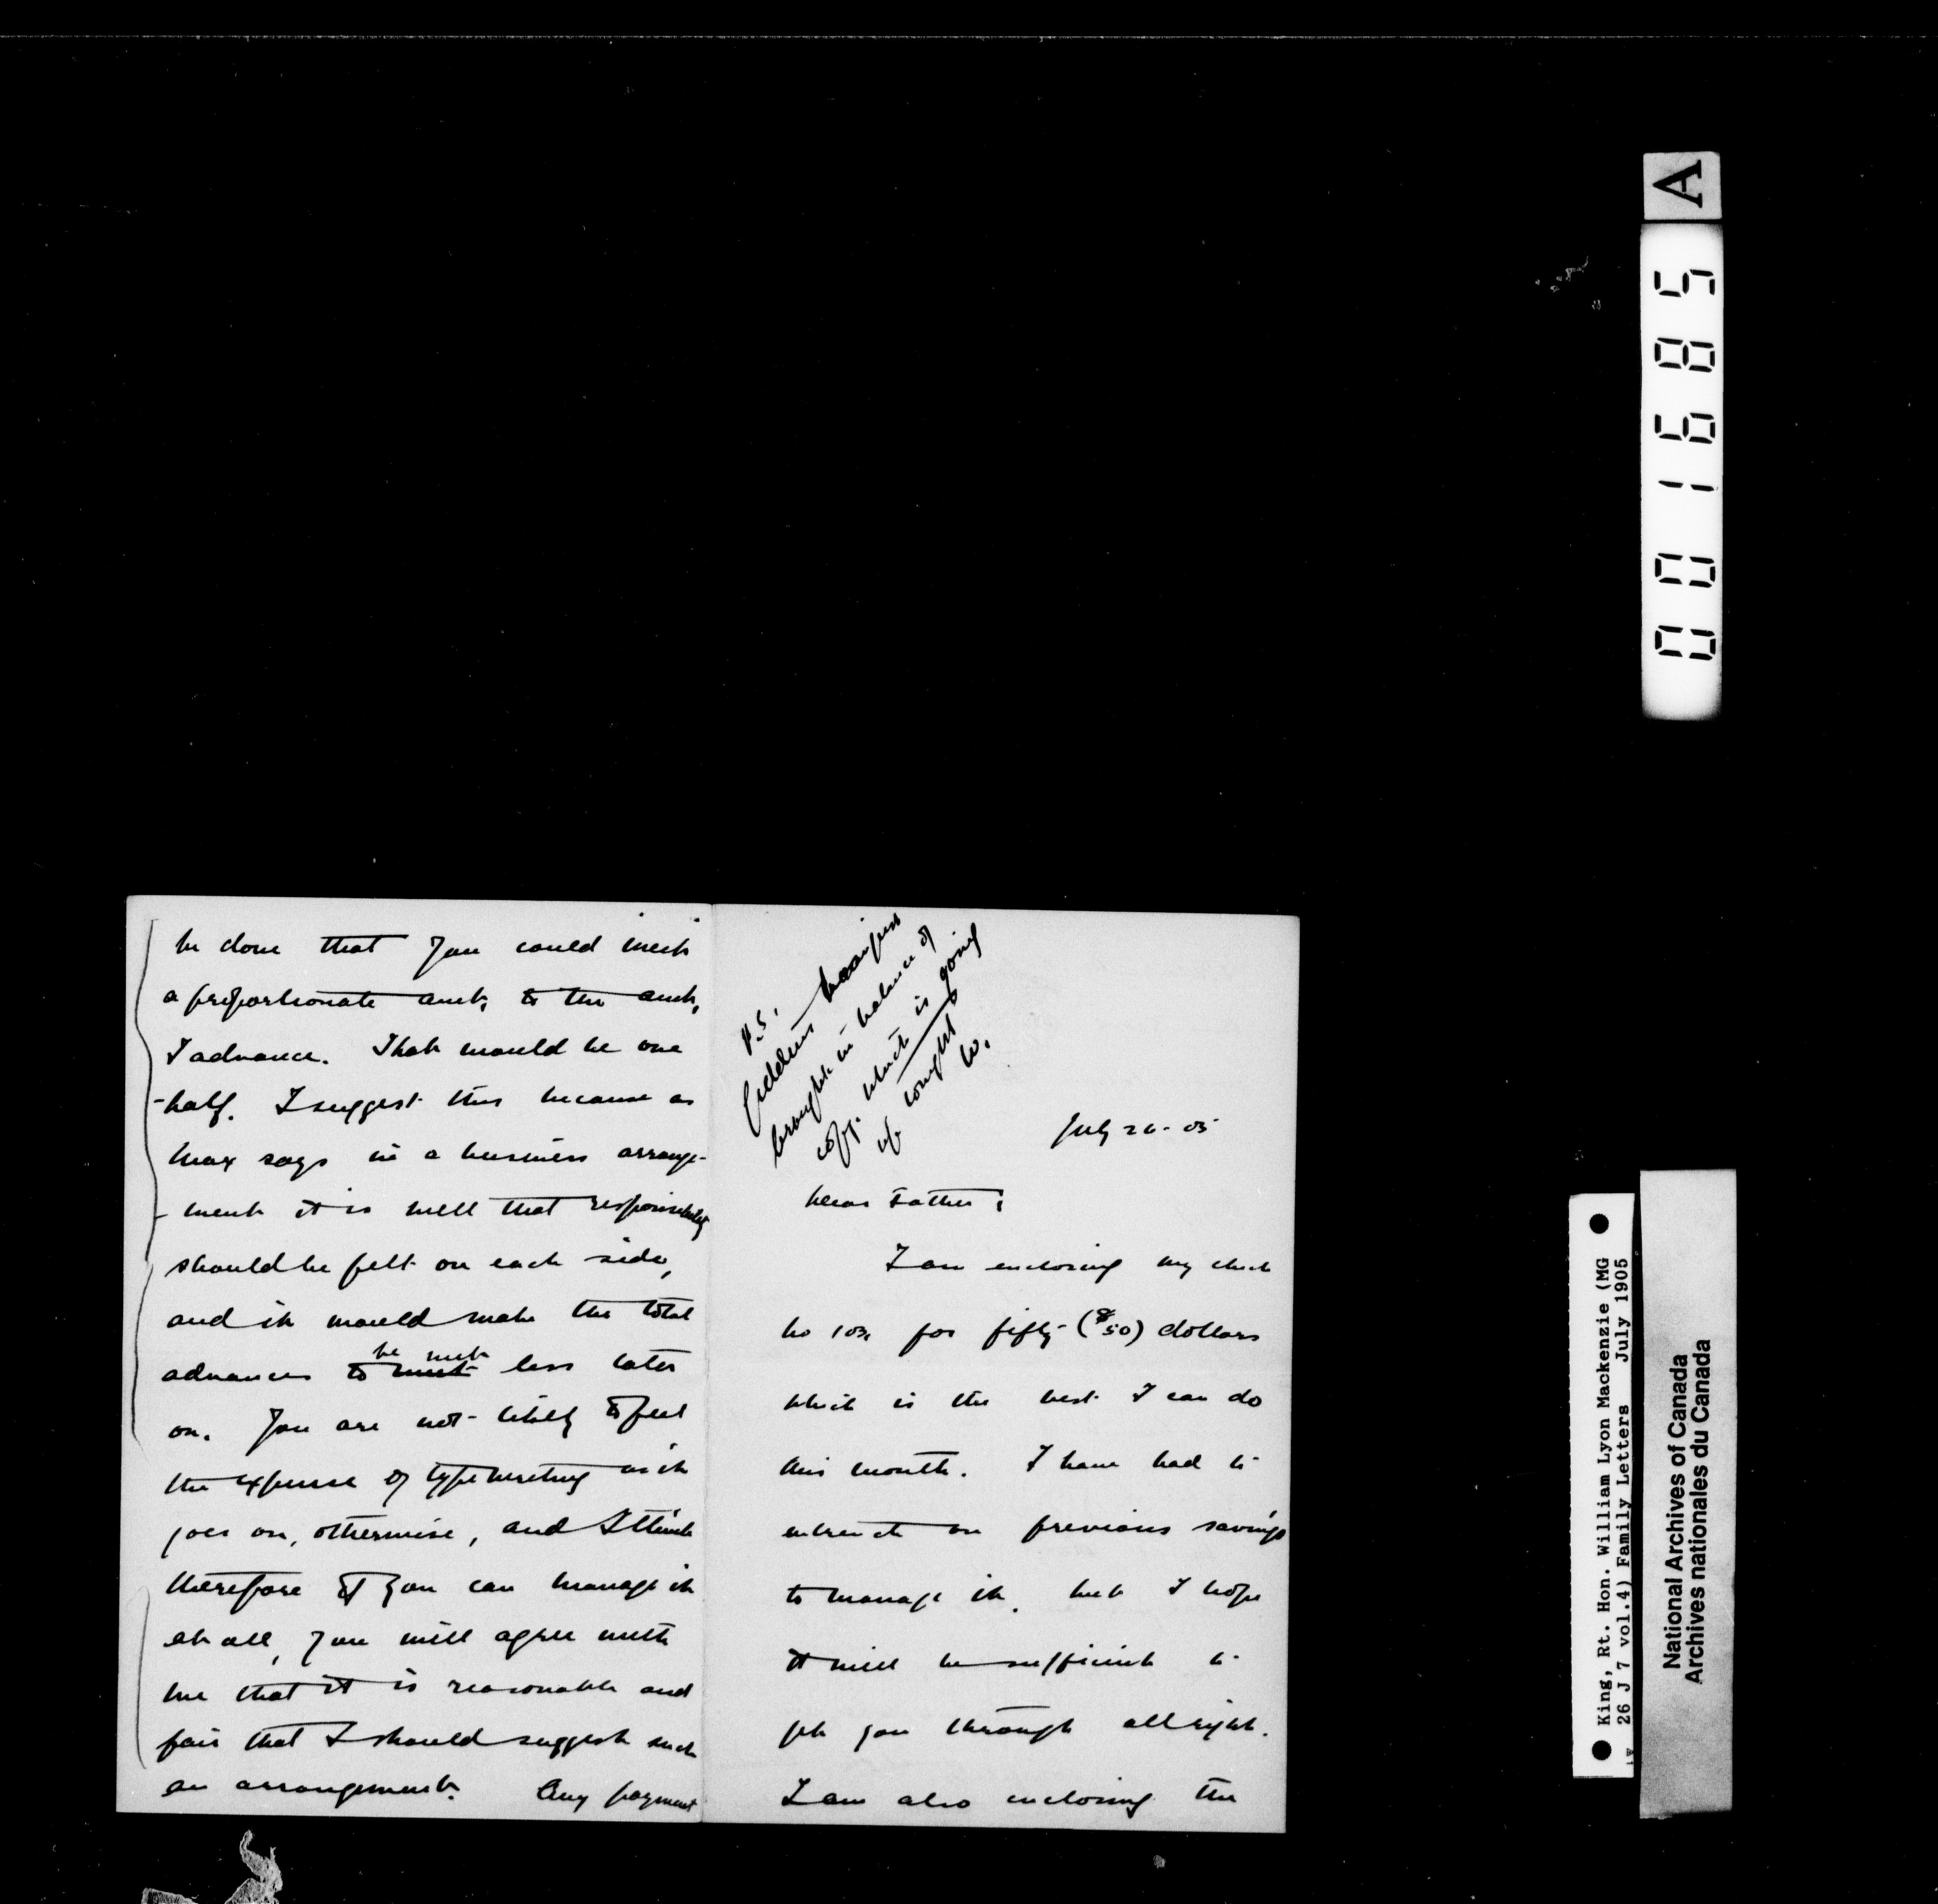 be done that you could meet
a proportionate amt. to the amt.
I advance. That would be one
-half. I suggest this because as
Max says in a business arrange-
-ment it is well that responsibility
should be felt on each side,
and it would make the total
advances to be met less later
on. You are not likely to feel
the expense of typewriting as it
goes on, otherwise, and I think
therefore if you can manage it
at all, you will agree with
me that it is reasonable and
fair that I should suggest such
an arrangement. Any payment
P.S.
brought in balance of
copy. which is going
up tonight
W.
July 26. 05
Dear Father:
I am enclosing my check
no for fifty ($50) dollars
which is the best I can do
this month. I have had to
entrench on previous savings
to manage it, but I hope
it will be sufficient to
get you through allright.
I am also enclosing the
A
001685
King, Rt. Hon. William Lyon Mackenzie (MG
26 J 7 vol.4) Family Letters July 1905
National Archives of Canada
Archives nationales du Canada